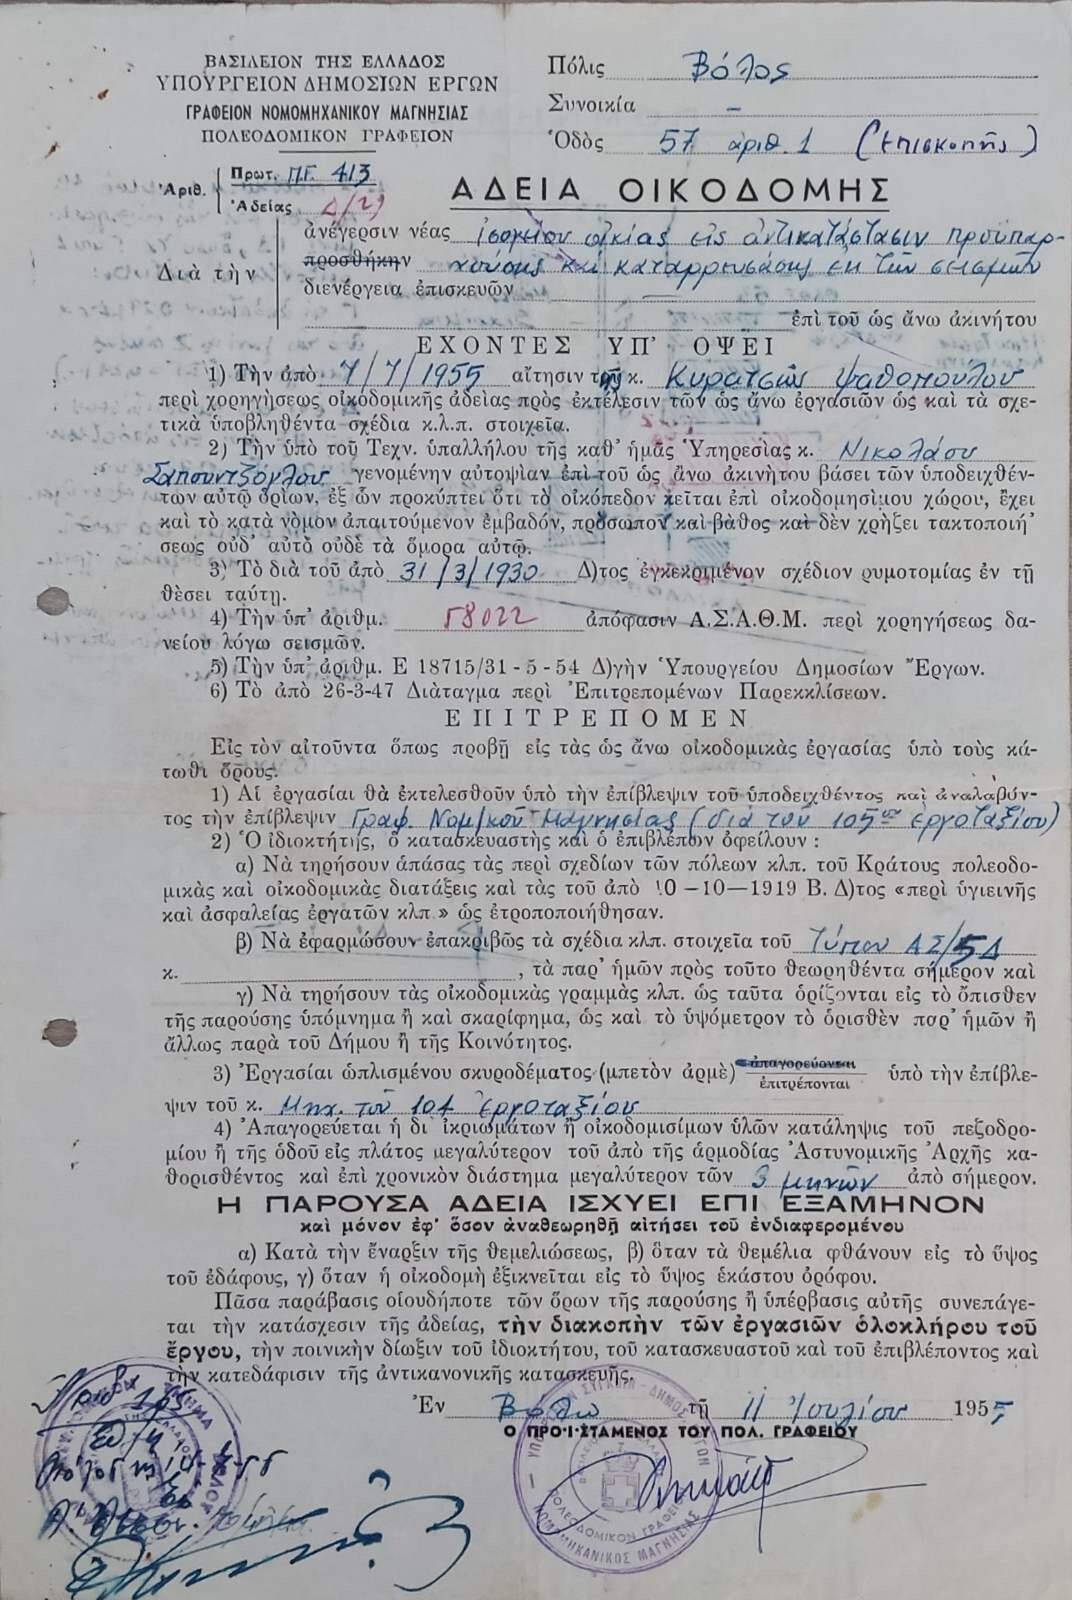 ΒΑΣΙΛΕΙΟΝ ΤΗΣ ΕΛΛΑΔΟΣ
ΥΠΟΥΡΓΕΙΟΝ ΔΗΜΟΣΙΩΝ ΕΡΓΩΝ
ΓΡΑΦΕΙΟΝ ΝΟΜΟΜΗΧΑΝΙΚΟΥ ΜΑΓΝΗΣΙΑΣ
ΠΟΛΕΟΔΟΜΙΚΟΝ ΓΡΑΦΕΙΟΝ
Πόλις Βόλος
Συνοικία –
Ὁδὸς 57 ἀριθ. 1 (Ἐπισκοπῆς)
Ἀριθ. Πρωτ. Π.Γ. 413
Ἀδείας Δ/29
ΑΔΕΙΑ ΟΙΚΟΔΟΜΗΣ
Διὰ τὴν
ἀνέγερσιν νέας ἰσογείου οἰκίας εἰς ἀντικατάστασιν προϋπαρ-
προσθήκην χούσης καὶ καταρρευσάσης ἐκ τῶν σεισμῶν
διενέργεια ἐπισκευῶν —
ἐπὶ τοῦ ὡς ἄνω ἀκινήτου
ΕΧΟΝΤΕΣ ΥΠ' ΟΨΕΙ
1) Τὴν ἀπὸ 7/7/1955 αἴτησιν τῆς κ. Κυρατσῶς Ψαθοπούλου
περὶ χορηγήσεως οἰκοδομικῆς ἀδείας πρὸς ἐκτέλεσιν τῶν ὡς ἄνω ἐργασιῶν ὡς καὶ τὰ σχε-
τικὰ ὑποβληθέντα σχέδια κ.λ.π. στοιχεῖα.
2) Τὴν ὑπὸ τοῦ Τεχν. ὑπαλλήλου τῆς καθ' ἡμᾶς Ὑπηρεσίας κ. Νικολάου
Σαπουντζόγλου γενομένην αὐτοψίαν ἐπὶ τοῦ ὡς ἄνω ἀκινήτου βάσει τῶν ὑποδειχθέν-
των αὐτῷ ὁρίων, ἐξ ὧν προκύπτει ὅτι τὸ οἰκόπεδον κεῖται ἐπὶ οἰκοδομησίμου χώρου, ἔχει
καὶ τὸ κατὰ νόμον ἀπαιτούμενον ἐμβαδόν, πρόσωπον καὶ βάθος καὶ δὲν χρῄζει τακτοποιή'
σεως οὐδ' αὐτὸ οὐδὲ τὰ ὅμορα αὐτῷ.
3) Τὸ διὰ τοῦ ἀπὸ 31/3/1930 Δ)τος ἐγκεκριμένον σχέδιον ρυμοτομίας ἐν τῇ
θέσει ταύτῃ.
4) Τὴν ὑπ' ἀριθμ. 58022 ἀπόφασιν Α.Σ.Α.Θ.Μ. περὶ χορηγήσεως δα-
νείου λόγω σεισμῶν.
5) Τὴν ὑπ' ἀριθμ. Ε 18715/31-5-54 Δ)γὴν Ὑπουργείου Δημοσίων Ἔργων.
6) Τὸ ἀπὸ 26-3-47 Διάταγμα περὶ Ἐπιτρεπομένων Παρεκκλίσεων.
ΕΠΙΤΡΕΠΟΜΕΝ
Εἰς τὸν αἰτοῦντα ὅπως προβῇ εἰς τὰς ὡς ἄνω οἰκοδομικὰς ἐργασίας ὑπὸ τοὺς κά-
τωθι ὅρους.
1) Αἱ ἐργασίαι θὰ ἐκτελεσθοῦν ὑπὸ τὴν ἐπίβλεψιν τοῦ ὑποδειχθέντος καὶ ἀναλαβόν-
τος τὴν ἐπίβλεψιν Γραφ. Νομ)κοῦ Μαγνησίας (διὰ τοῦ 105ου ἐργοταξίου)
2) Ὁ ἰδιοκτήτης, ὁ κατασκευαστὴς καὶ ὁ ἐπιβλέπων ὀφείλουν :
α) Νὰ τηρήσουν ἁπάσας τὰς περὶ σχεδίων τῶν πόλεων κλπ. τοῦ Κράτους πολεοδο-
μικὰς καὶ οἰκοδομικὰς διατάξεις καὶ τὰς τοῦ ἀπὸ 10-10-1919 Β. Δ)τος «περὶ ὑγιεινῆς
καὶ ἀσφαλείας ἐργατῶν κλπ.» ὡς ἐτροποποιήθησαν.
β) Νὰ ἐφαρμώσουν ἐπακριβῶς τὰ σχέδια κλπ. στοιχεῖα τοῦ Τύπου ΑΣ/5Δ
κ. , τὰ παρ' ἡμῶν πρὸς τοῦτο θεωρηθέντα σήμερον καὶ
γ) Νὰ τηρήσουν τὰς οἰκοδομικὰς γραμμὰς κλπ. ὡς ταῦτα ὁρίζονται εἰς τὸ ὄπισθεν
τῆς παρούσης ὑπόμνημα ἢ καὶ σκαρίφημα, ὡς καὶ τὸ ὑψόμετρον τὸ ὁρισθὲν παρ' ἡμῶν ἢ
ἄλλως παρὰ τοῦ Δήμου ἢ τῆς Κοινότητος.
3) Ἐργασίαι ὡπλισμένου σκυροδέματος (μπετὸν ἀρμὲ) ἀπαγορεύονται
ἐπιτρέπονται ὑπὸ τὴν ἐπίβλε-
ψιν τοῦ κ. Μηχ. τοῦ 104 ἐργοταξίου
4) Ἀπαγορεύεται ἡ δι' ἰκριωμάτων ἢ οἰκοδομισίμων ὑλῶν κατάληψις τοῦ πεζοδρο-
μίου ἢ τῆς ὁδοῦ εἰς πλάτος μεγαλύτερον τοῦ ἀπὸ τῆς ἁρμοδίας Ἀστυνομικῆς Ἀρχῆς κα-
θορισθέντος καὶ ἐπὶ χρονικὸν διάστημα μεγαλύτερον τῶν 3 μηνῶν ἀπὸ σήμερον.
Η ΠΑΡΟΥΣΑ ΑΔΕΙΑ ΙΣΧΥΕΙ ΕΠΙ ΕΞΑΜΗΝΟΝ
καὶ μόνον ἐφ' ὅσον ἀναθεωρηθῇ αἰτήσει τοῦ ἐνδιαφερομένου
α) Κατὰ τὴν ἔναρξιν τῆς θεμελιώσεως, β) ὅταν τὰ θεμέλια φθάνουν εἰς τὸ ὕψος
τοῦ ἐδάφους, γ) ὅταν ἡ οἰκοδομὴ ἐξικνεῖται εἰς τὸ ὕψος ἑκάστου ὀρόφου.
Πᾶσα παράβασις οἱουδήποτε τῶν ὅρων τῆς παρούσης ἢ ὑπέρβασις αὐτῆς συνεπάγε-
ται τὴν κατάσχεσιν τῆς ἀδείας, τὴν διακοπὴν τῶν ἐργασιῶν ὁλοκλήρου τοῦ
ἔργου, τὴν ποινικὴν δίωξιν τοῦ ἰδιοκτήτου, τοῦ κατασκευαστοῦ καὶ τοῦ ἐπιβλέποντος καὶ
τὴν κατεδάφισιν τῆς ἀντικανονικῆς κατασκευῆς.
Ἐν Βόλῳ τῇ 11 Ἰουλίου 1955
Ο ΠΡΟ·Ι·ΣΤΑΜΕΝΟΣ ΤΟΥ ΠΟΛ. ΓΡΑΦΕΙΟΥ
ΠΟΛΕΟΔΟΜΙΚΟΝ ΓΡΑΦΕΙΟΝ
ΝΟΜΟΜΗΧΑΝΙΚΟΣ ΜΑΓΝΗΣΙΑΣ